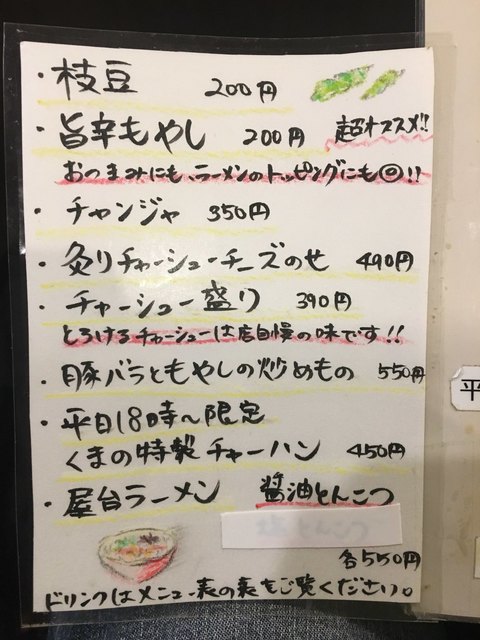 ・枝豆 200円
・旨辛もやし 200円 超オススメ!!
おつまみにも、ラーメンのトッピングにも◎!!
・チャンジャ 350円
・炙りチャーシューチーズのせ 490円
・チャーシュー盛り 390円
とろけるチャーシューは店自慢の味です!!
・豚バラともやしの炒めもの 550円
・平日18時〜限定
くまの特製チャーハン 450円
・屋台ラーメン 醤油とんこつ
各550円
ドリンクはメニュー表の裏もご覧ください。
平